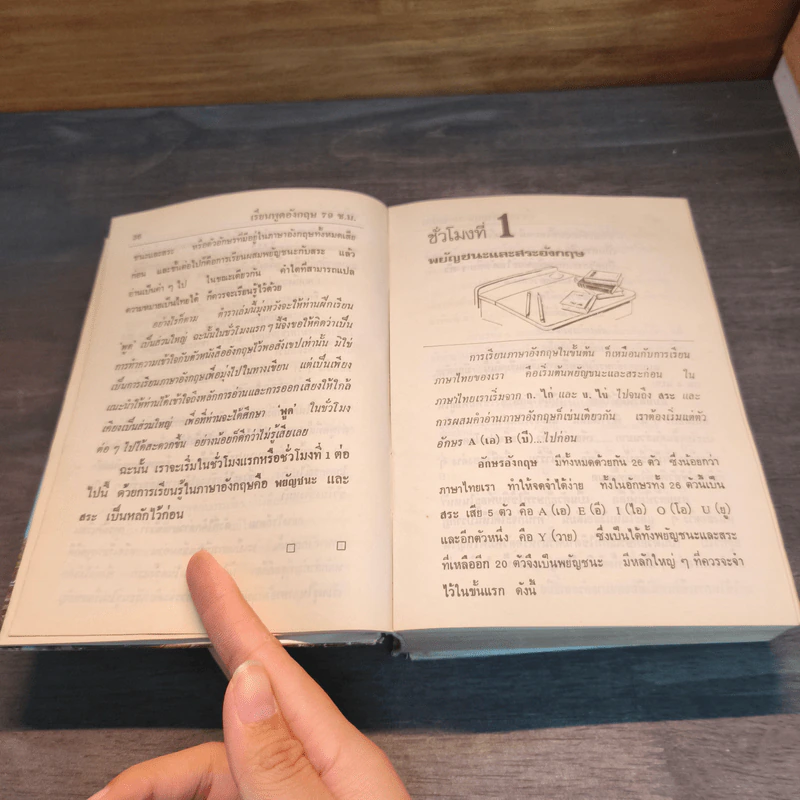 36
เรียนพูดอังกฤษ 79 ช.ม.
ชนะและสระ หรือตัวอักษรที่มีอยู่ในภาษาอังกฤษทั้งหมดเสีย
ก่อน และขั้นต่อไปก็คือการเรียนผสมพยัญชนะกับสระ แล้ว
อ่านเป็นคำ ๆ ไป ในขณะเดียวกัน คำใดที่สามารถแปล
ความหมายเป็นไทยได้ ก็ควรจะเรียนรู้ไว้ด้วย
อย่างไรก็ตาม ตำราเล่มนี้มุ่งหวังจะให้ท่านฝึกเรียน
"พูด" เป็นส่วนใหญ่ ฉะนั้นในชั่วโมงแรก ๆ นี้จึงขอให้คิดว่าเป็น
การทำความเข้าใจกับตัวหนังสืออังกฤษไว้พอสังเขปเท่านั้น มิใช่
เป็นการเรียนภาษาอังกฤษเพื่อมุ่งไปในทางเขียน แต่เป็นเพียง
แนะนำให้ท่านได้เข้าใจถึงหลักการอ่านและการออกเสียงให้ใกล้
เคียงเป็นส่วนใหญ่ เพื่อที่ท่านจะได้ศึกษา "พูด" ในชั่วโมง
ต่อ ๆ ไปได้สะดวกขึ้น อย่างน้อยก็ดีกว่าไม่รู้เสียเลย
ฉะนั้น เราจะเริ่มในชั่วโมงแรกหรือชั่วโมงที่ 1 ต่อ
ไปนี้ ด้วยการเรียนรู้ในภาษาอังกฤษคือ พยัญชนะ และ
สระ เป็นหลักไว้ก่อน
ชั่วโมงที่ 1
พยัญชนะและสระอังกฤษ
การเรียนภาษาอังกฤษในขั้นต้น ก็เหมือนกับการเรียน
ภาษาไทยของเรา คือเริ่มต้นพยัญชนะและสระก่อน ใน
ภาษาไทยเราเริ่มจาก ก. ไก่ และ ข. ไข่ ไปจนถึง สระ และ
การผสมคำอ่านภาษาอังกฤษก็เช่นเดียวกัน เราต้องเริ่มแต่ตัว
อักษร A (เอ) B (บี)...ไปก่อน
อักษรอังกฤษ มีทั้งหมดด้วยกัน 26 ตัว ซึ่งน้อยกว่า
ภาษาไทยเรา ทำให้จดจำได้ง่าย ทั้งในอักษรทั้ง 26 ตัวนี้เป็น
สระ เสีย 5 ตัว คือ A (เอ) E (อี) I (ไอ) O (โอ) U (ยู)
และอีกตัวหนึ่ง คือ Y (วาย) ซึ่งเป็นได้ทั้งพยัญชนะและสระ
ที่เหลืออีก 20 ตัวจึงเป็นพยัญชนะ มีหลักใหญ่ ๆ ที่ควรจะจำ
ไว้ในขั้นแรก ดังนี้